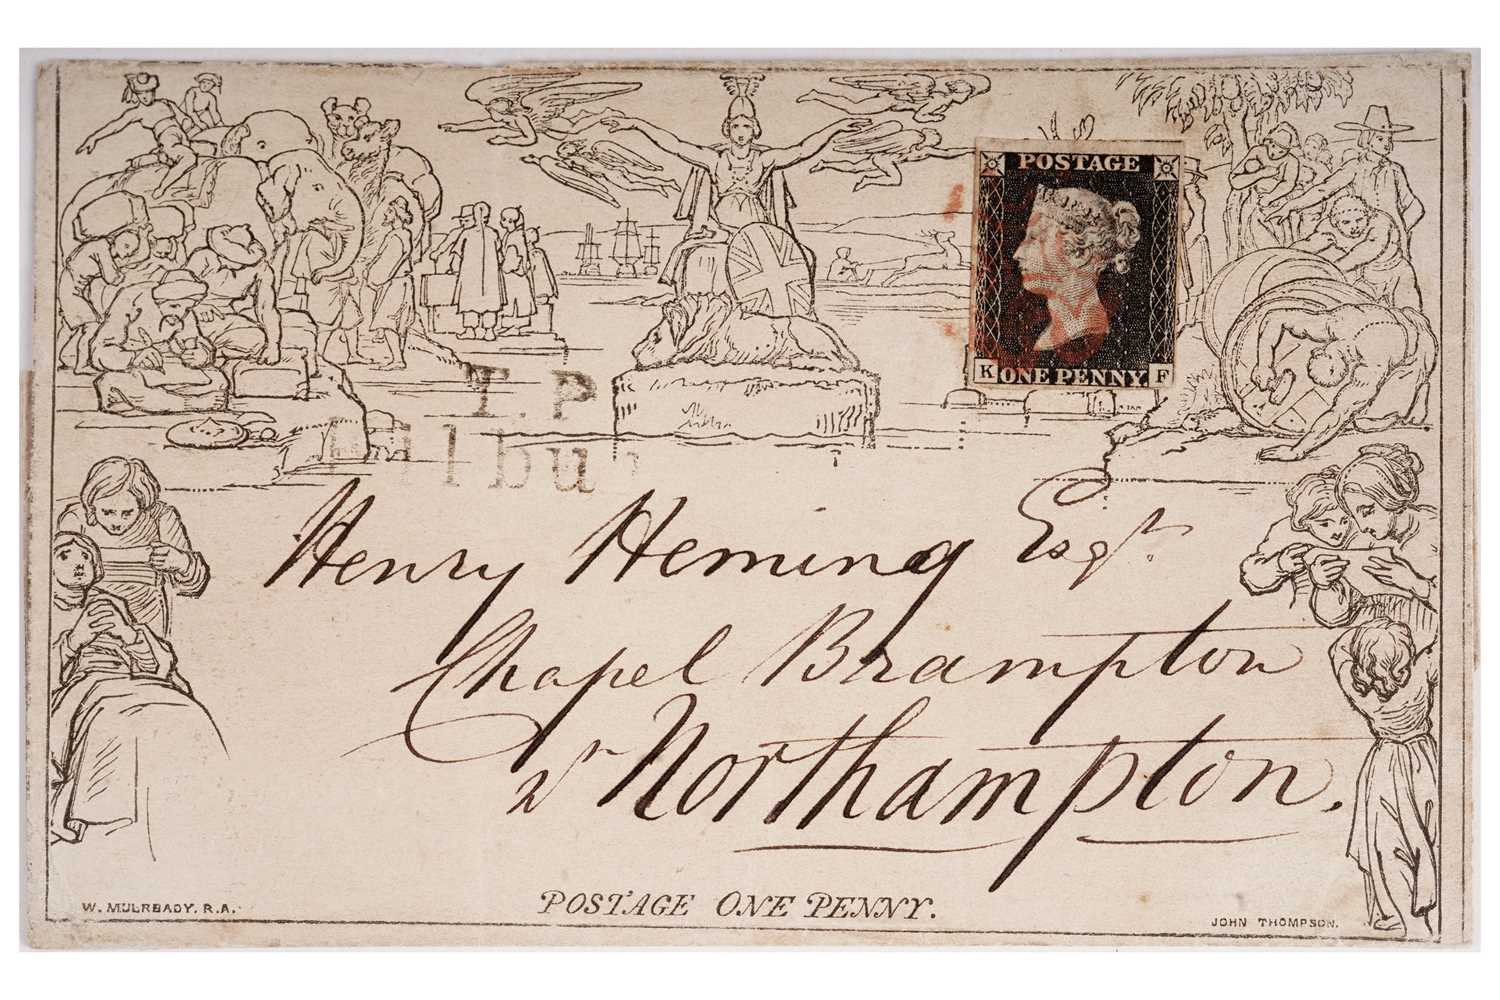 POSTAGE
K ONE PENNY. F
T. P
Kilbu
Henry Heming Esqr.
Chapel Brampton
nr Northampton.
POSTAGE ONE PENNY.
W. MULREADY. R.A.
JOHN THOMPSON.